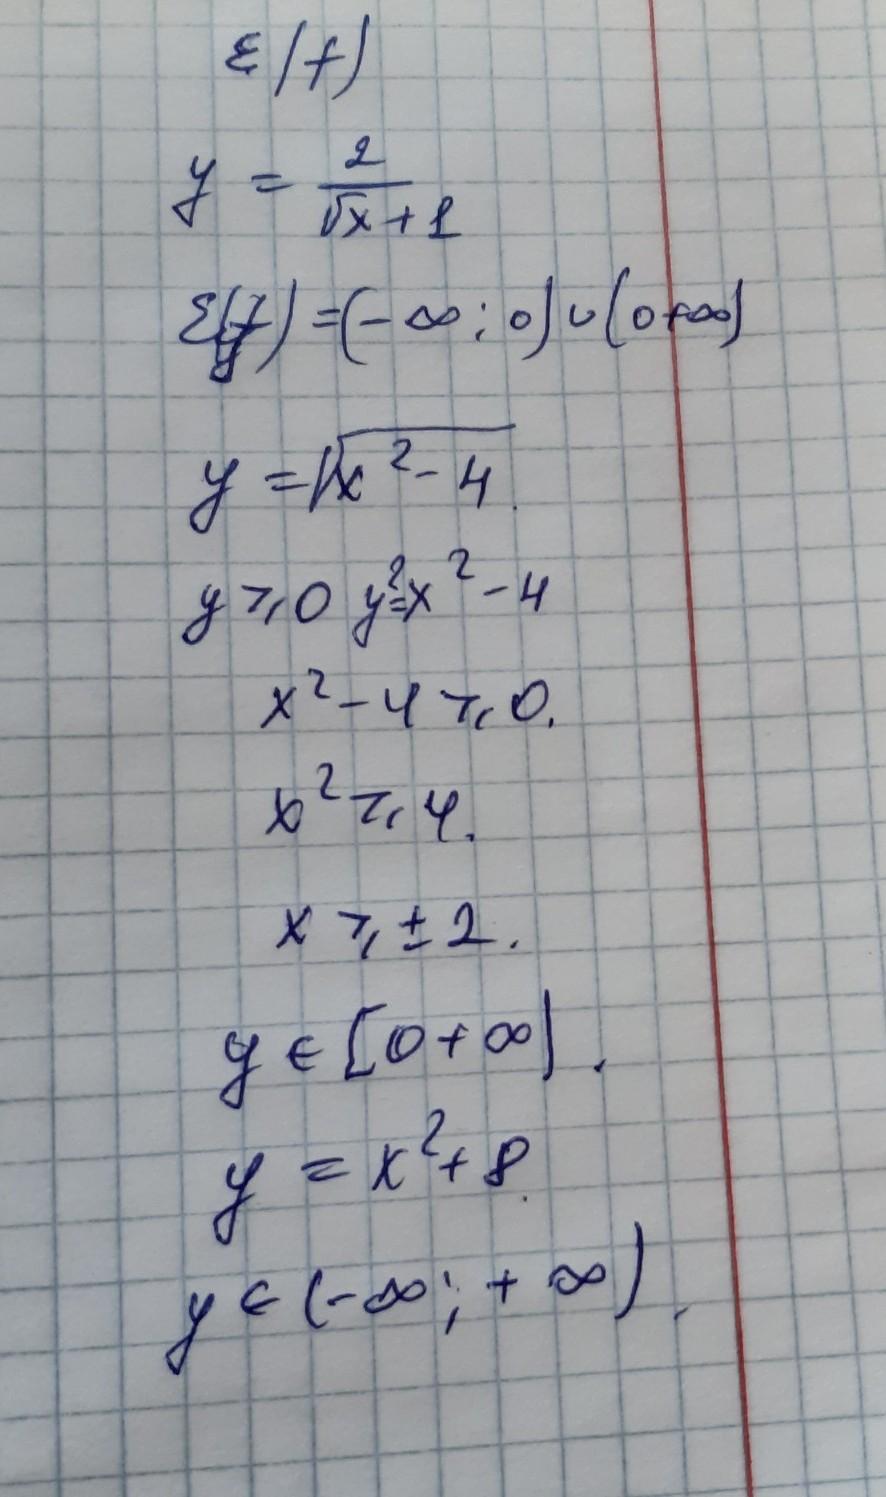 E(f)
y = 2/(√x + 1)
E(y) = (-∞; 0) ∪ (0 +∞)
y = √(x² - 4).
y ⩾ 0 y² = x² - 4
x² - 4 ⩾ 0.
x² ⩾ 4.
x ⩾ ± 2.
y ∈ [0 + ∞).
y = x² + 8.
y ∈ (-∞; + ∞).